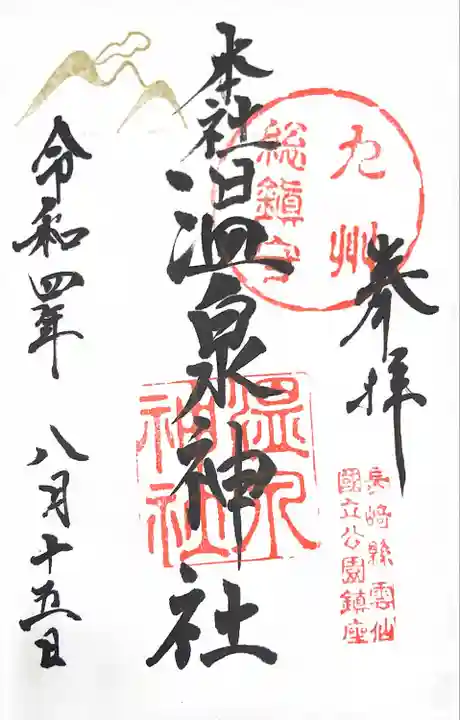 奉拝
九州
総鎮守
本社温泉神社
温泉
神社
長崎縣雲仙
國立公園鎮座
令和四年
八月十五日